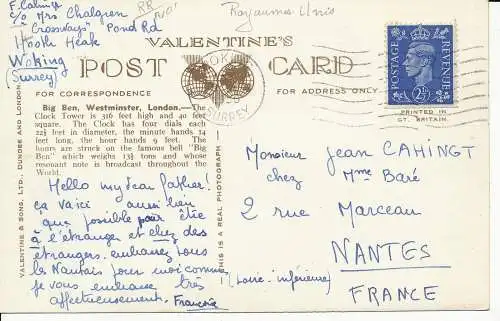 F. Cahingt
c/o Mrs Chalgren
"Crossways" Pond Rd
Hook Heath
Woking
(Surrey)
RR
Royaume Unis
VALENTINE'S
POST CARD
FOR CORRESPONDENCE
FOR ADDRESS ONLY
POSTAGE REVENUE
2½D
PRINTED IN
GT. BRITAIN
SURREY
Big Ben, Westminster, London.—The
Clock Tower is 316 feet high and 40 feet
square. The Clock has four dials each
22½ feet in diameter, the minute hands 14
feet long, the hour hands 9 feet. The
hours are struck on the famous bell "Big
Ben" which weighs 13½ tons and whose
resonant note is broadcast throughout the
World.
VALENTINE & SONS, LTD., DUNDEE AND LONDON
THIS IS A REAL PHOTOGRAPH
Hello my dear father!
ça va ici aussi bien
que possible pour être
à l'étranger et chez des
étrangers. embrassez tous
les Nantais pour moi comme
je vous embrasse très
affectueusement. Françoise
Monsieur Jean CAHINGT
chez Mme Baré
2 rue Marceau
NANTES
(Loire-inférieure)
FRANCE